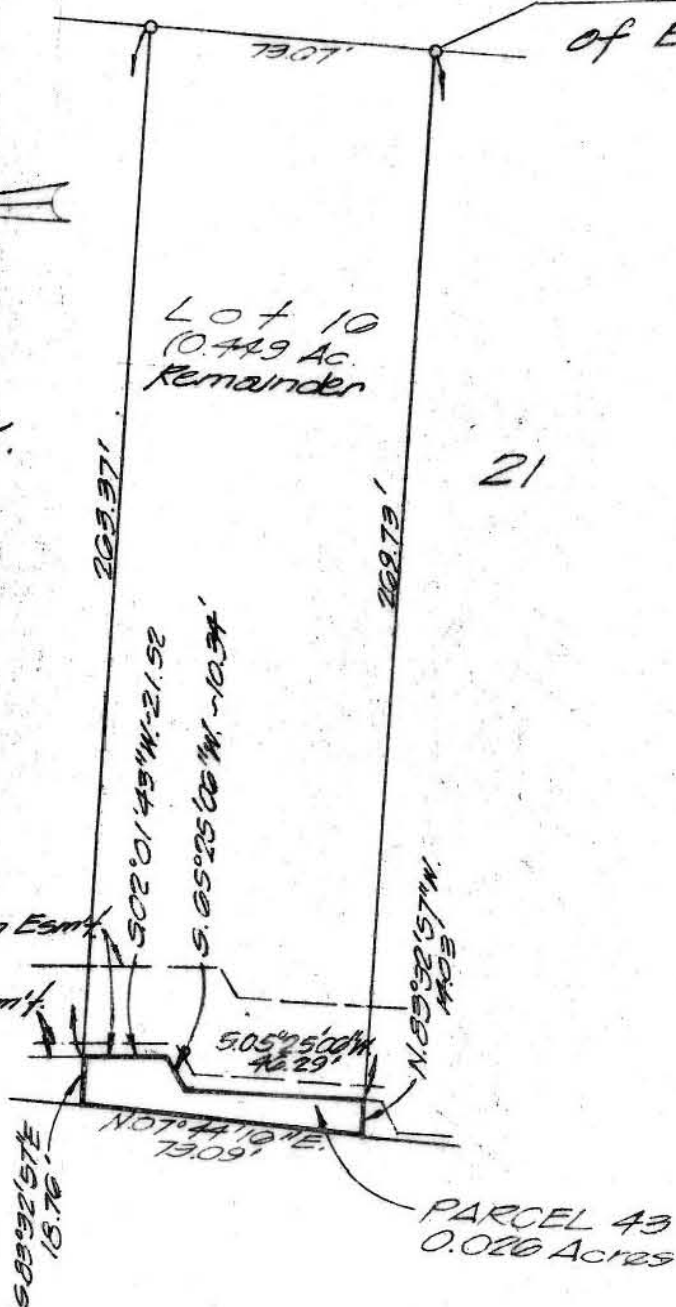 of E
73.07'
Lot 16
(0.449 Ac.
Remainder
21
263.37'
269.73'
S.02°01'43"W.-21.52
S.65°25'06"W.-10.34'
Esm't.
m't.
S.05°25'06"W.
46.29'
N.83°32'57"W.
14.03'
N.07°44'16"E.
73.09'
S.83°32'57"E
18.76'
PARCEL 43
0.026 Acres